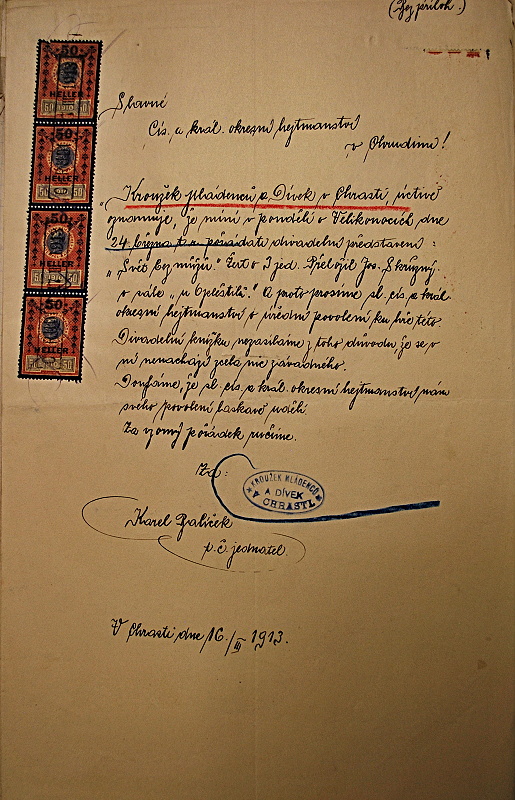 (Bez příloh.)
50
HELLER
50 1910 50
50
HELLER
50 1910 50
50
HELLER
50 1910 50
50
HELLER
50 1910 50
Slavné
Cís. a král. okresní hejtmanství
v Chrudimi!
"Kroužek Mládenců a Dívek v Chrasti, uctivě
oznamuje, že míní v pondělí o Velikonocích, dne
24. března t. r. pořádati divadelní představení:
"Svět bez mužů." Žert o 3 jed. Přeložil Jos. Skružný.
v sále "u Opleštilů." A proto prosíme sl. cís. a král.
okresní hejtmanství o úřední povolení ku hře této.
Divadelní knížku nezasíláme z toho důvodu, že se v
ní nenachází zcela nic závadného.
Doufáme, že sl. cís. a král. okresní hejtmanství nám
svého povolení laskavě udělí.
Za vzorný pořádek ručíme.
Za:
KROUŽEK MLÁDENCŮ
A DÍVEK
CHRASTI.
Karel
p. č. jednatel.
V Chrasti dne 16./III 1913.